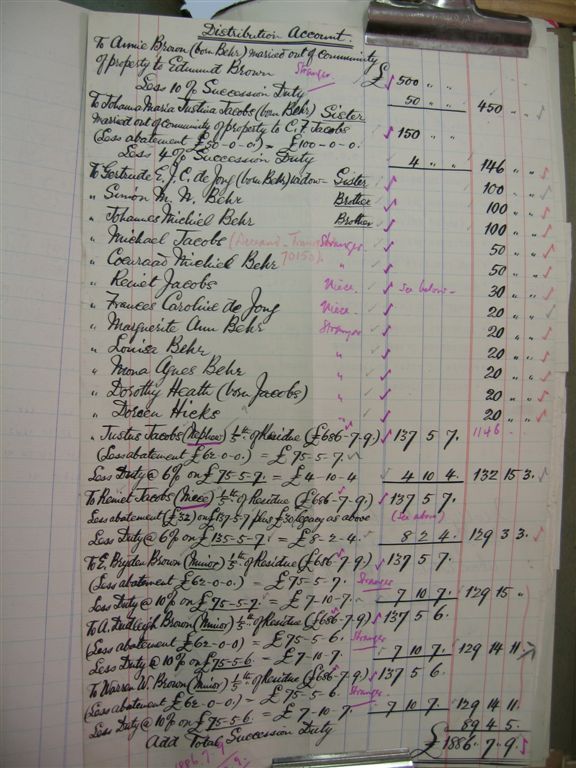 Distribution Account.
To Annie Brown (born Behr) married out of community
of property to Edmund Brown Stranger £ 500 " "
Less 10% Succession Duty 50 " " 450 " "
To Johanna Maria Justina Jacobs (born Behr) Sister
married out of community of property to C. F. Jacobs 150 " "
(Less abatement £50-0-0.) = £100-0-0.
Less 4% Succession Duty 4 " " 146 " "
To Gertruide E. J. C. de Jong (born Behr) widow - Sister 100 " "
" Simon M. N. Behr Brother 100 " "
" Johannes Michiel Behr Brother 100 " "
" Michael Jacobs Stranger 50 " "
" Coenraad Michiel Behr " 50 " "
" Reniet Jacobs Niece. see below - 30 " "
" Frances Caroline de Jong Niece. 20 " "
" Marguerite Ann Behr Stranger 20 " "
" Louisa Behr " 20 " "
" Mona Agnes Behr " 20 " "
" Dorothy Heath (born Jacobs) " 20 " "
" Doreen Hicks " 20 " "
" Justus Jacobs (Nephew) 1/5th of Residue (£686-7-9.) 137 5 7. 1146 -
(Less abatement £62-0-0.) = £75-5-7.
Less Duty @ 6% on £75-5-7. = £4-10-4 4 10 4. 132 15 3.
To Reniet Jacobs (Niece) 1/5th of Residue (£686-7-9.) 137 5 7.
Less abatement (£32) on £137-5-7 plus £30 legacy as above (See above)
Less Duty @ 6% on £135-5-7. = £8-2-4. 8 2 4. 129 3 3.
To E. Bryden Brown (Minor) 1/5th of Residue (£686-7-9) 137 5 7.
(Less abatement £62-0-0.) = £75-5-7. Stranger
Less Duty @ 10% on £75-5-7. = £7-10-7. 7 10 7. 129 15 "
To A. Dudleigh Brown (Minor) 1/5th of Residue (£686-7-9) 137 5 6.
(Less abatement £62-0-0) = £75-5-6. Stranger
Less Duty @ 10% on £75-5-6. = £7-10-7. 7 10 7. 129 14 11.
To Warren W. Brown (Minor) 1/5th of Residue (£686-7-9) 137 5 6.
(Less abatement £62-0-0.) = £75-5-6. Stranger
Less Duty @ 10% on £75-5-6. = £7-10-7. 7 10 7. 129 14 11.
Add Total Succession Duty 89 4 5.
£1886.7.9.